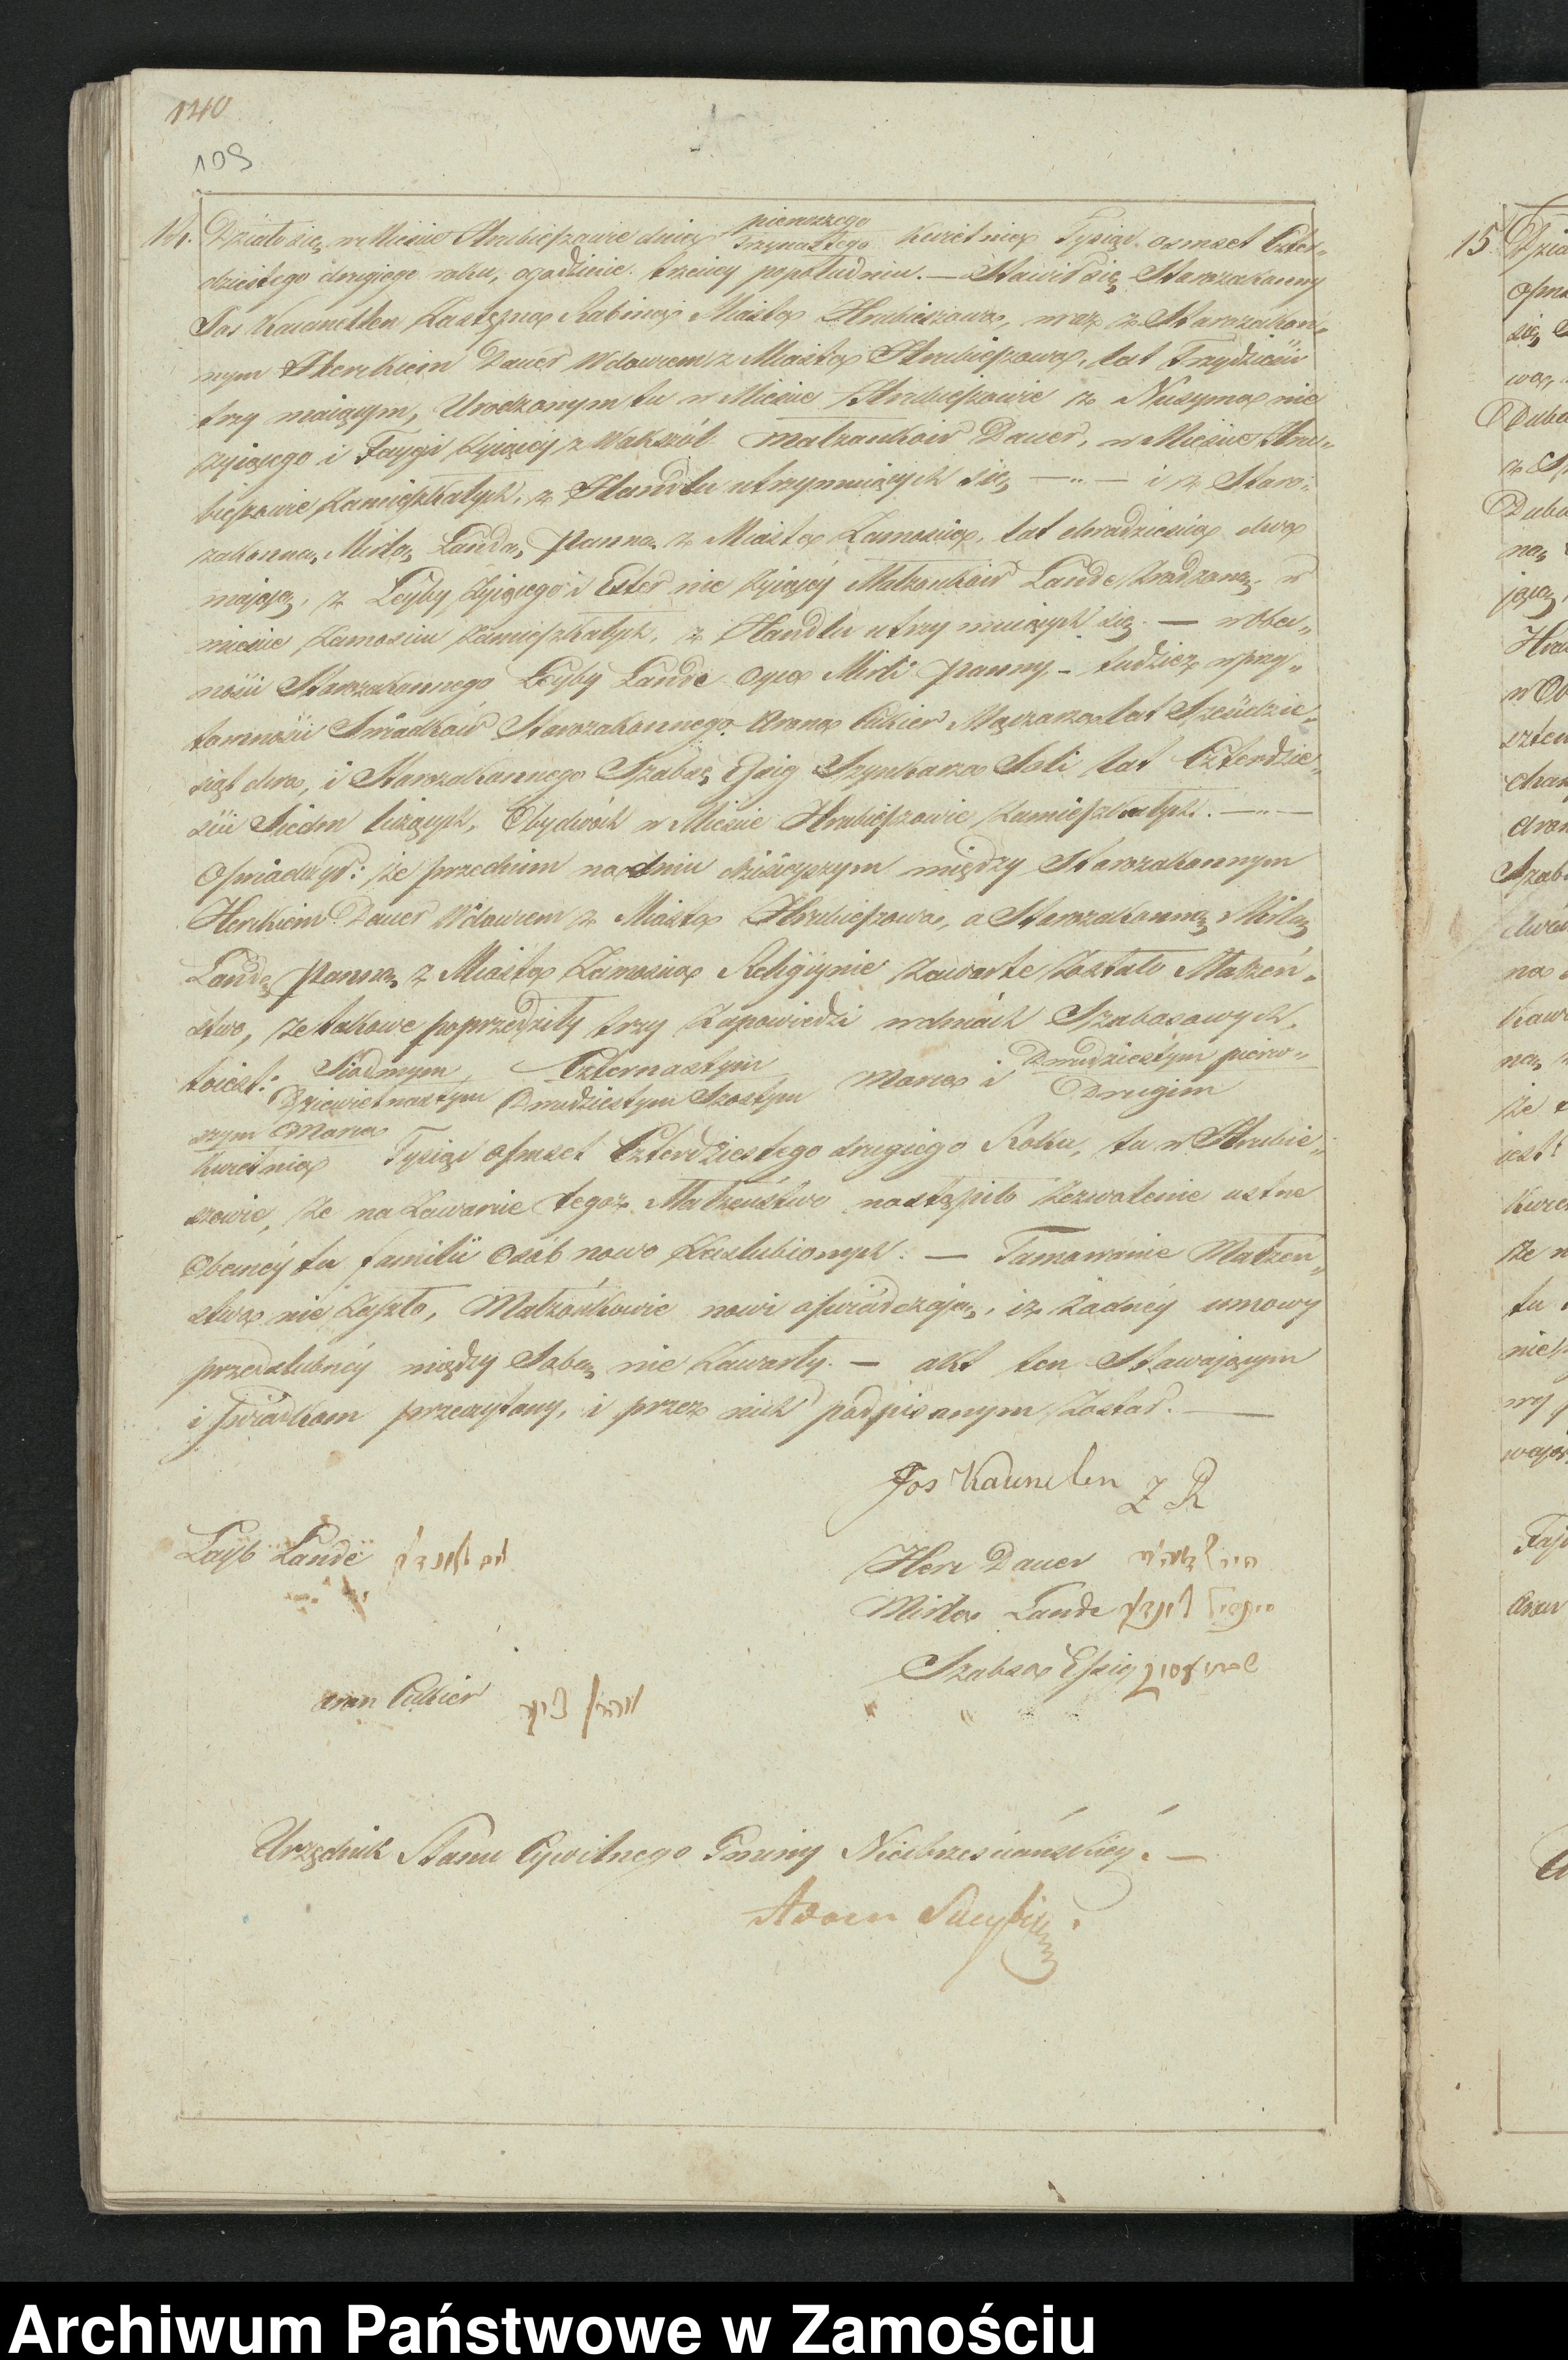 140
109
14. Działo się w Mieście Hrubieszowie dnia pierwszego / Trzynastego Kwietnia Tysiąc osmset Czter-
dziestego drugiego roku, o godzinie trzeciey popołudniu. — Stawił się Starozakonny
Jos Kaunellen Zastępca Rabina Miasta Hrubieszowa, wraz z Starozakon-
nym Herszkiem Dauer Wdowcem z Miasta Hrubieszowa, lat Trzydzieści
trzy maiącym, Urodzonym tu w Mieście Hrubieszowie z Nusyma nie
żyiącego i Faygi żyiącey z Wakszöl Małżonków Dauer, w Mieście Hru-
bieszowie Zamieszkałych, z Handlu utrzymuiących się — „ — i z Staro-
zakonną Mirlą Landą Panną z Miasta Zamościa, lat dwadzieścia dwa
mającą, z Leyby żyiącego i Ester nie żyiącéy Małżonków Lande zrodzoną, w
mieście Zamościu zamieszkałych, z Handlu utrzymuiących się. — w Obec-
ności Starozakonnego Leyby Lande Oyca Mirli Panny, - tudzież w przy-
tomności Świadków Starozakonnego Arona Cukier Mączarza lat Sześćdzie-
siąt dwa, i Starozakonnego Szabsę Essig Szynkarza Soli lat Czterdzie-
ści Siedm liczących, Obydwóch w Mieście Hrubieszowie Zamieszkałych. — „ —
Oświadczył: że przednim na dniu dzisieyszym między Starozakonnym
Herszkiem Dauer Wdowcem z Miasta Hrubieszowa, a Starozakonną Mirlą
Landą Panną z Miasta Zamościa Religiynie Zawarte Zostało Małżeń-
stwo, że takowe poprzedziły trzy Zapowiedzi w dniach Szabasowych,
toiest: Siodmym, Czternastym / Dziewiętnastym Dwudziestym Szostym Marca i Dwudziestym pierw- / Drugim
szym Marca / Kwietnia Tysiąc osmset Czterdziestego drugiego Roku, tu w Hrubie-
szowie, że na Zawarcie tegoż Małżeństwo nastąpiło Zezwolenie ustne
Obecnéy tu familii Osób nowo Zaślubionych. — Tamowanie Małżeń-
stwa nie Zaszło, Małżonkowie nowi oświadczają, iż żadnéy umowy
przedślubnéy między Sobą nie Zawarły. — akt ten Stawającym
i świadkom przeczytany, i przez nich podpisanym Został. —
Jos Kaunelen Z R
Layb Lande
Herz Dauer
Mirla Lande
Szabsa Essig
aron Cukier
Urzędnik Stanu Cywilnego Gminy Nieledwiańskiey. —
Adam
15
Archiwum Państwowe w Zamościu